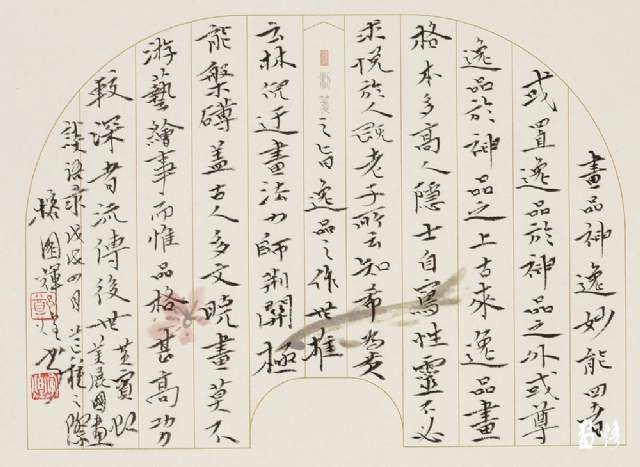 畫品神逸妙能四者
或置逸品於神品之外或尊
逸品於神品之上古來逸品畫
格本多高人隱士自寫性靈不必
求悅於人既老子所云知希為貴
之旨逸品之作世推
云林倪迂畫法力師荊關極
能槃礴蓋古人多文曉畫莫不
游藝繪事而惟品格甚高功
較深者流傳後世
黃賓虹
美展國畫
談語錄戊戌四月之際
國輝